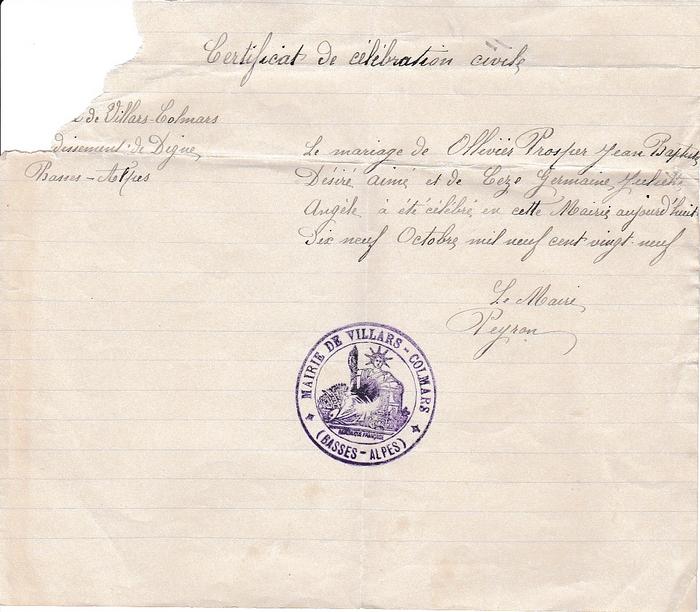 Certificat de célébration civile
de Villars-Colmars
dissement de Digne
Basses-Alpes
Le mariage de Ollivier Prosper Jean Baptiste
Désiré Aimé et de Ceze Germaine Juliette
Angèle à été célébré en cette Mairie aujourd'huit
Dix neuf Octobre mil neuf cent vingt-neuf
Le Maire
Peyron
MAIRIE DE VILLARS-COLMARS
RÉPUBLIQUE FRANÇAISE
(BASSES-ALPES)